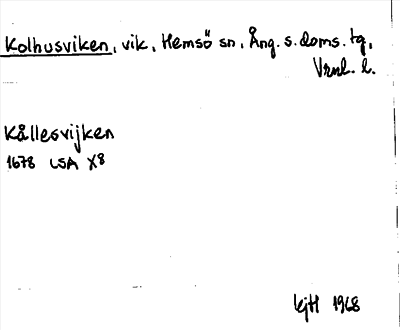 Kolhusviken, vik, Hemsö sn, Ång. s. doms. tg,
Vrnl. l.
Kållesvijken
1678 LSA X8
KjH 1968